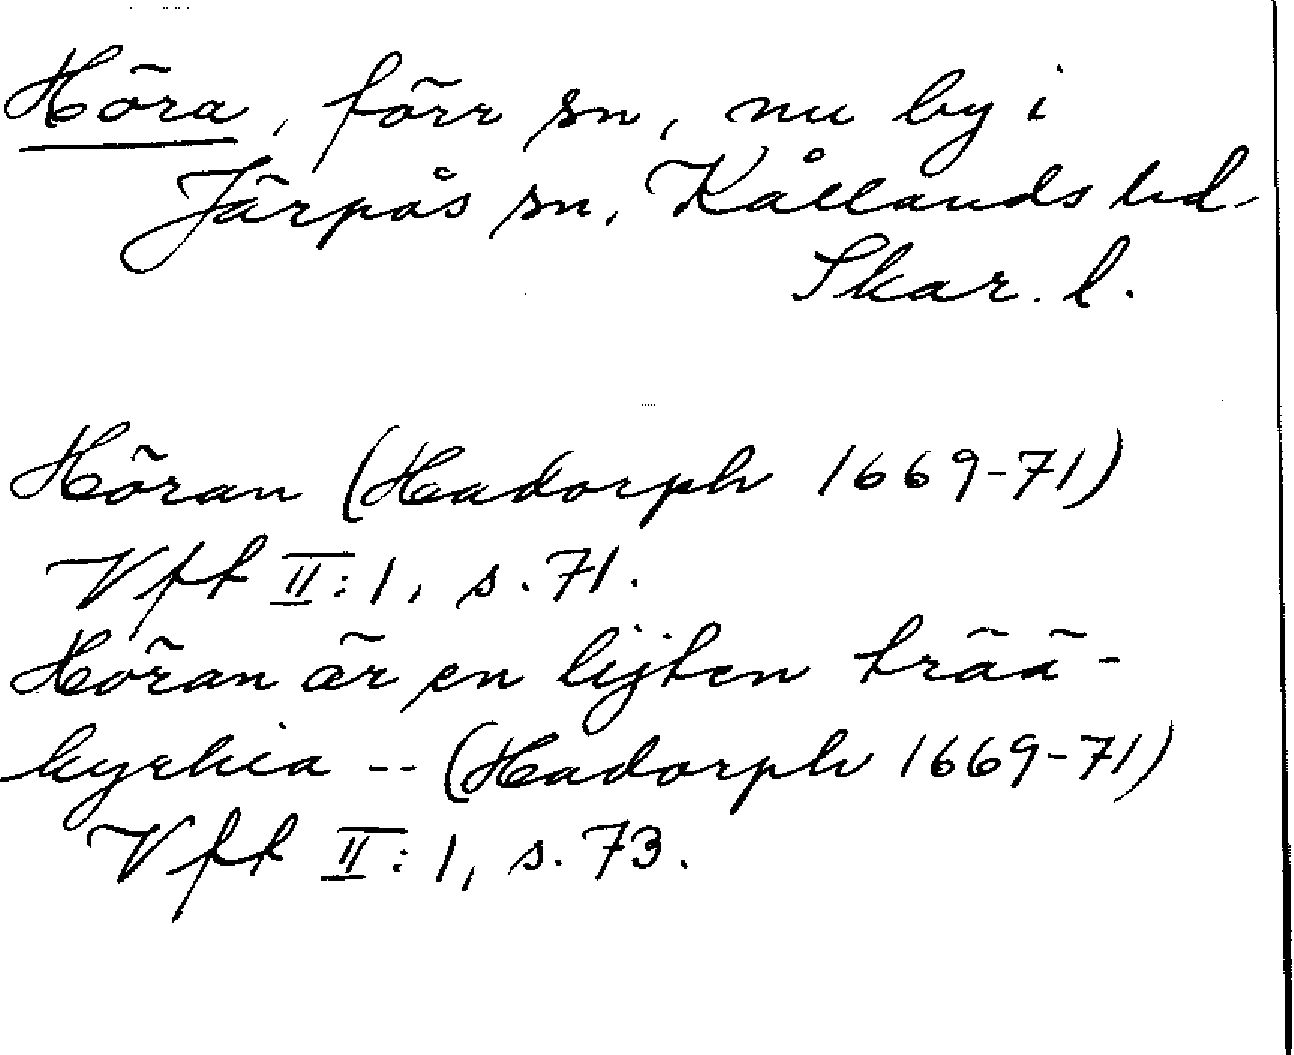 Höra, förr sn, nu by i
Järpås sn, Kållands hd
Skar. l.
Höran (Hadorph 1669-71)
Vft II:1, s. 71.
Höran är en lijten trää-
kyrkia -- (Hadorph 1669-71)
Vft II:1, s. 73.